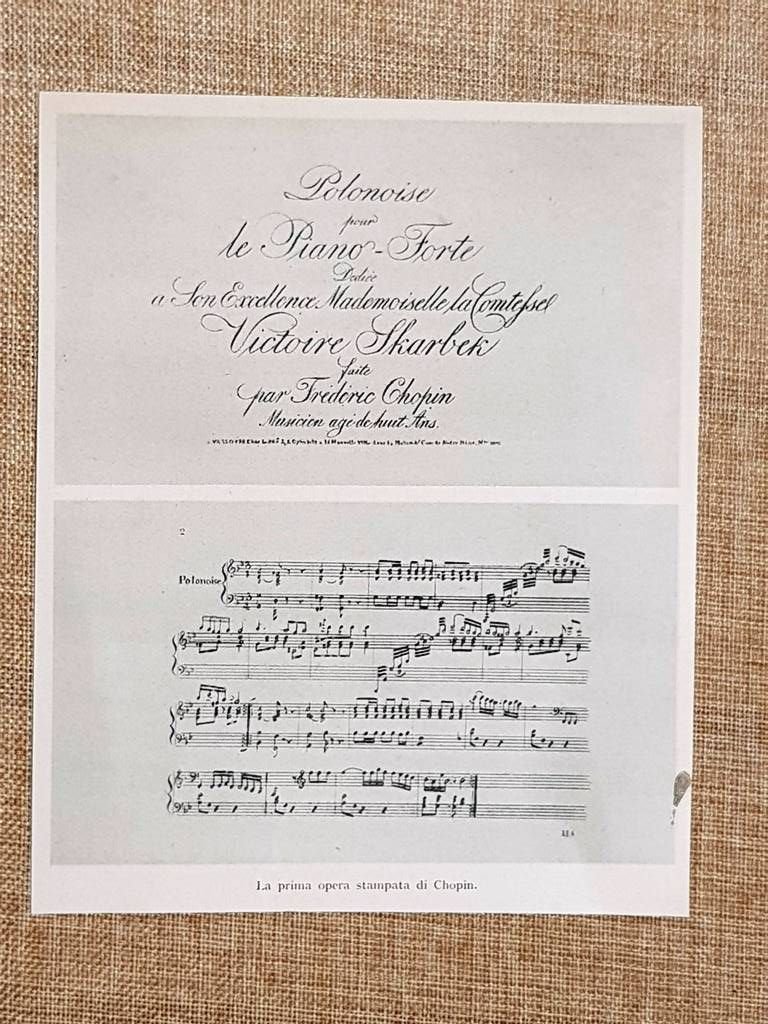 Polonoise
pour
le Piano-Forte
Dediée
a Son Excellence Mademoiselle la Comtesse
Victoire Skarbek
faite
par Frédéric Chopin
Musicien agé de huit Ans.
2
Polonoise
La prima opera stampata di Chopin.